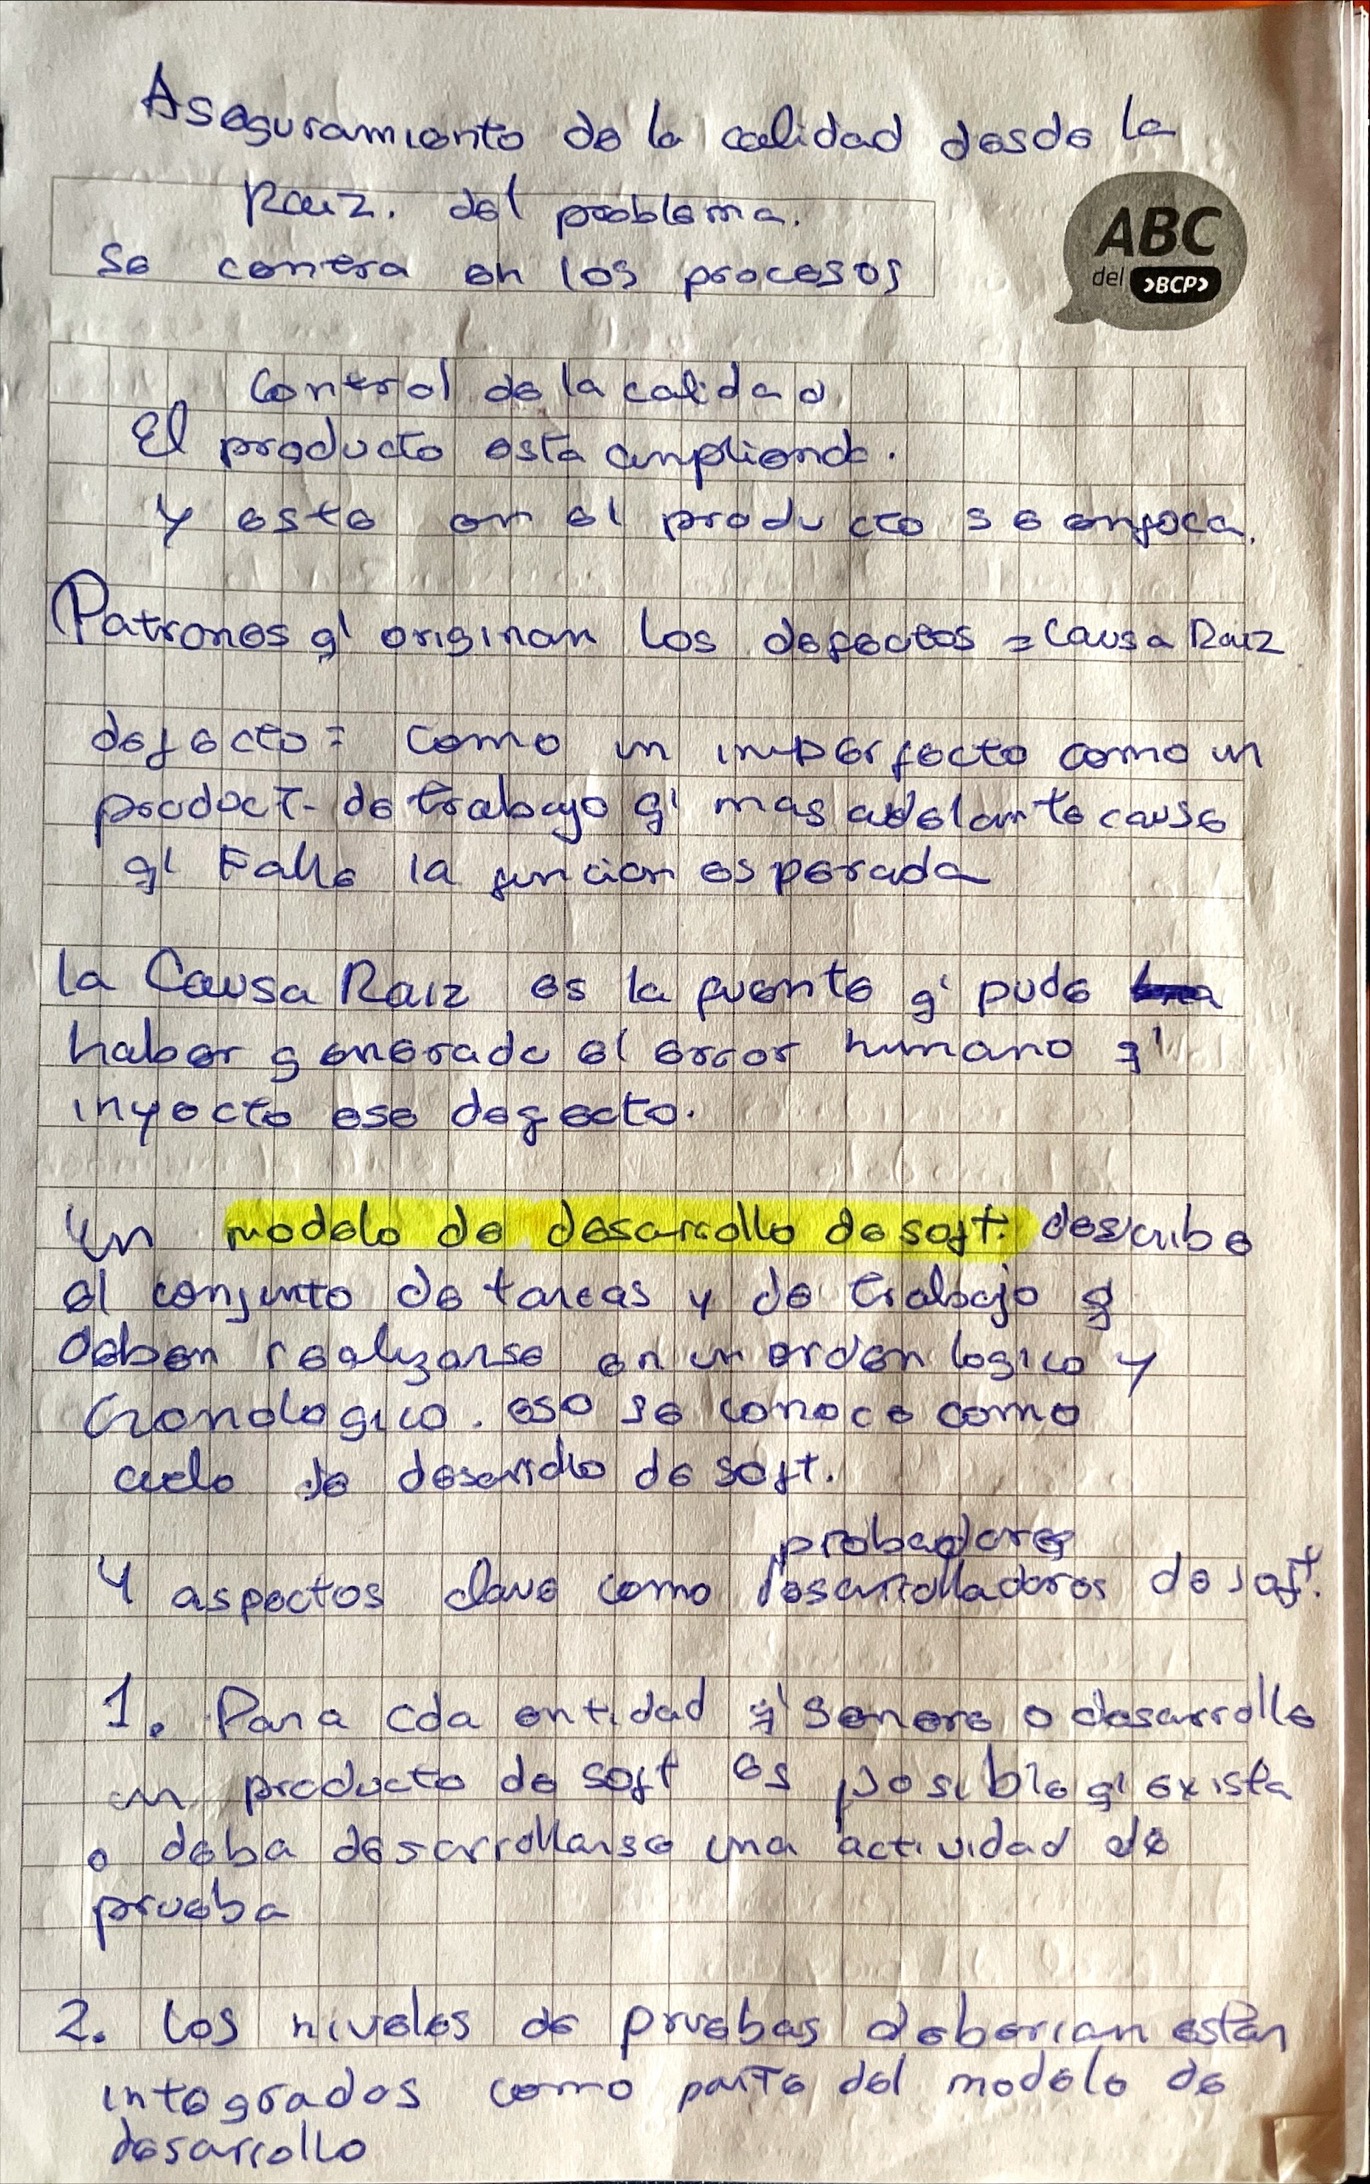 Aseguramiento de la calidad desde la
Raiz. del problema.
se centra en los procesos
ABC
del >BCP>
Control de la calidad
El producto esta ampliando.
Y este en el producto se enfoca.
Patrones q' originan los defectos = Causa Raiz
defecto = como un imperfecto como un
product- de trabajo q' mas adelante cause
q' Falle la funcion esperada
la Causa Raiz es la fuente q' pudo
haber generado el error humano q'
inyecto ese defecto.
Un modelo de desarrollo de soft. describe
el conjunto de tareas y de trabajo q
deben realizarse en un orden logico y
Cronologico. eso se conoce como
ciclo de desarrollo de soft.
probadores
4 aspectos clave como desarrolladores de soft.
1. Para cda entidad q' genere o desarrolle
un producto de soft es posible q' exista
o deba desarrollarse una actividad de
prueba
2. Los niveles de pruebas deberian estar
integrados como parte del modelo de
desarrollo